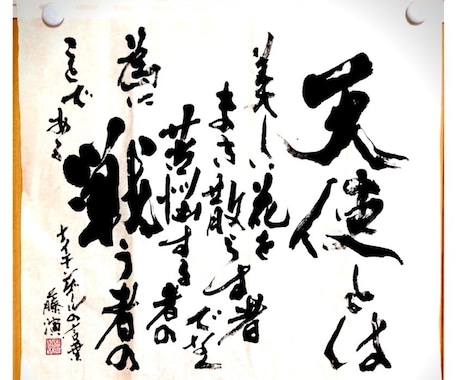 天使とは
美しい花を
まき散らす者
でなく
苦悩する者の
為に
戦う者の
ことである
ナイチンゲールの言葉